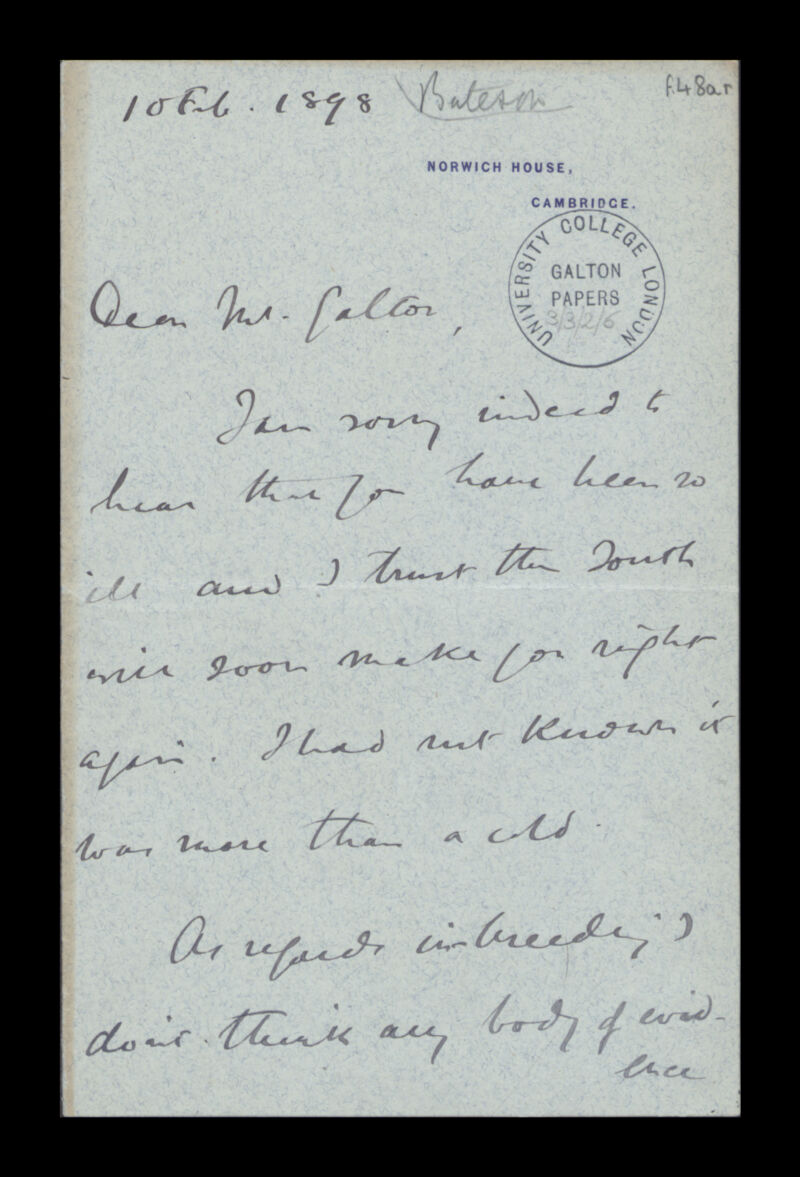 10 Feb. 1898
Bateson
f.48ar
NORWICH HOUSE,
CAMBRIDGE.
UNIVERSITY COLLEGE LONDON
GALTON
PAPERS
3/3/2/6
Dear Mr. Galton,
I am sorry indeed to
hear that you have been so
ill and I trust the South
will soon make you right
again. I had not known it
was more than a cold.
As regards in-breeding I
don't think any body of evid-
ence